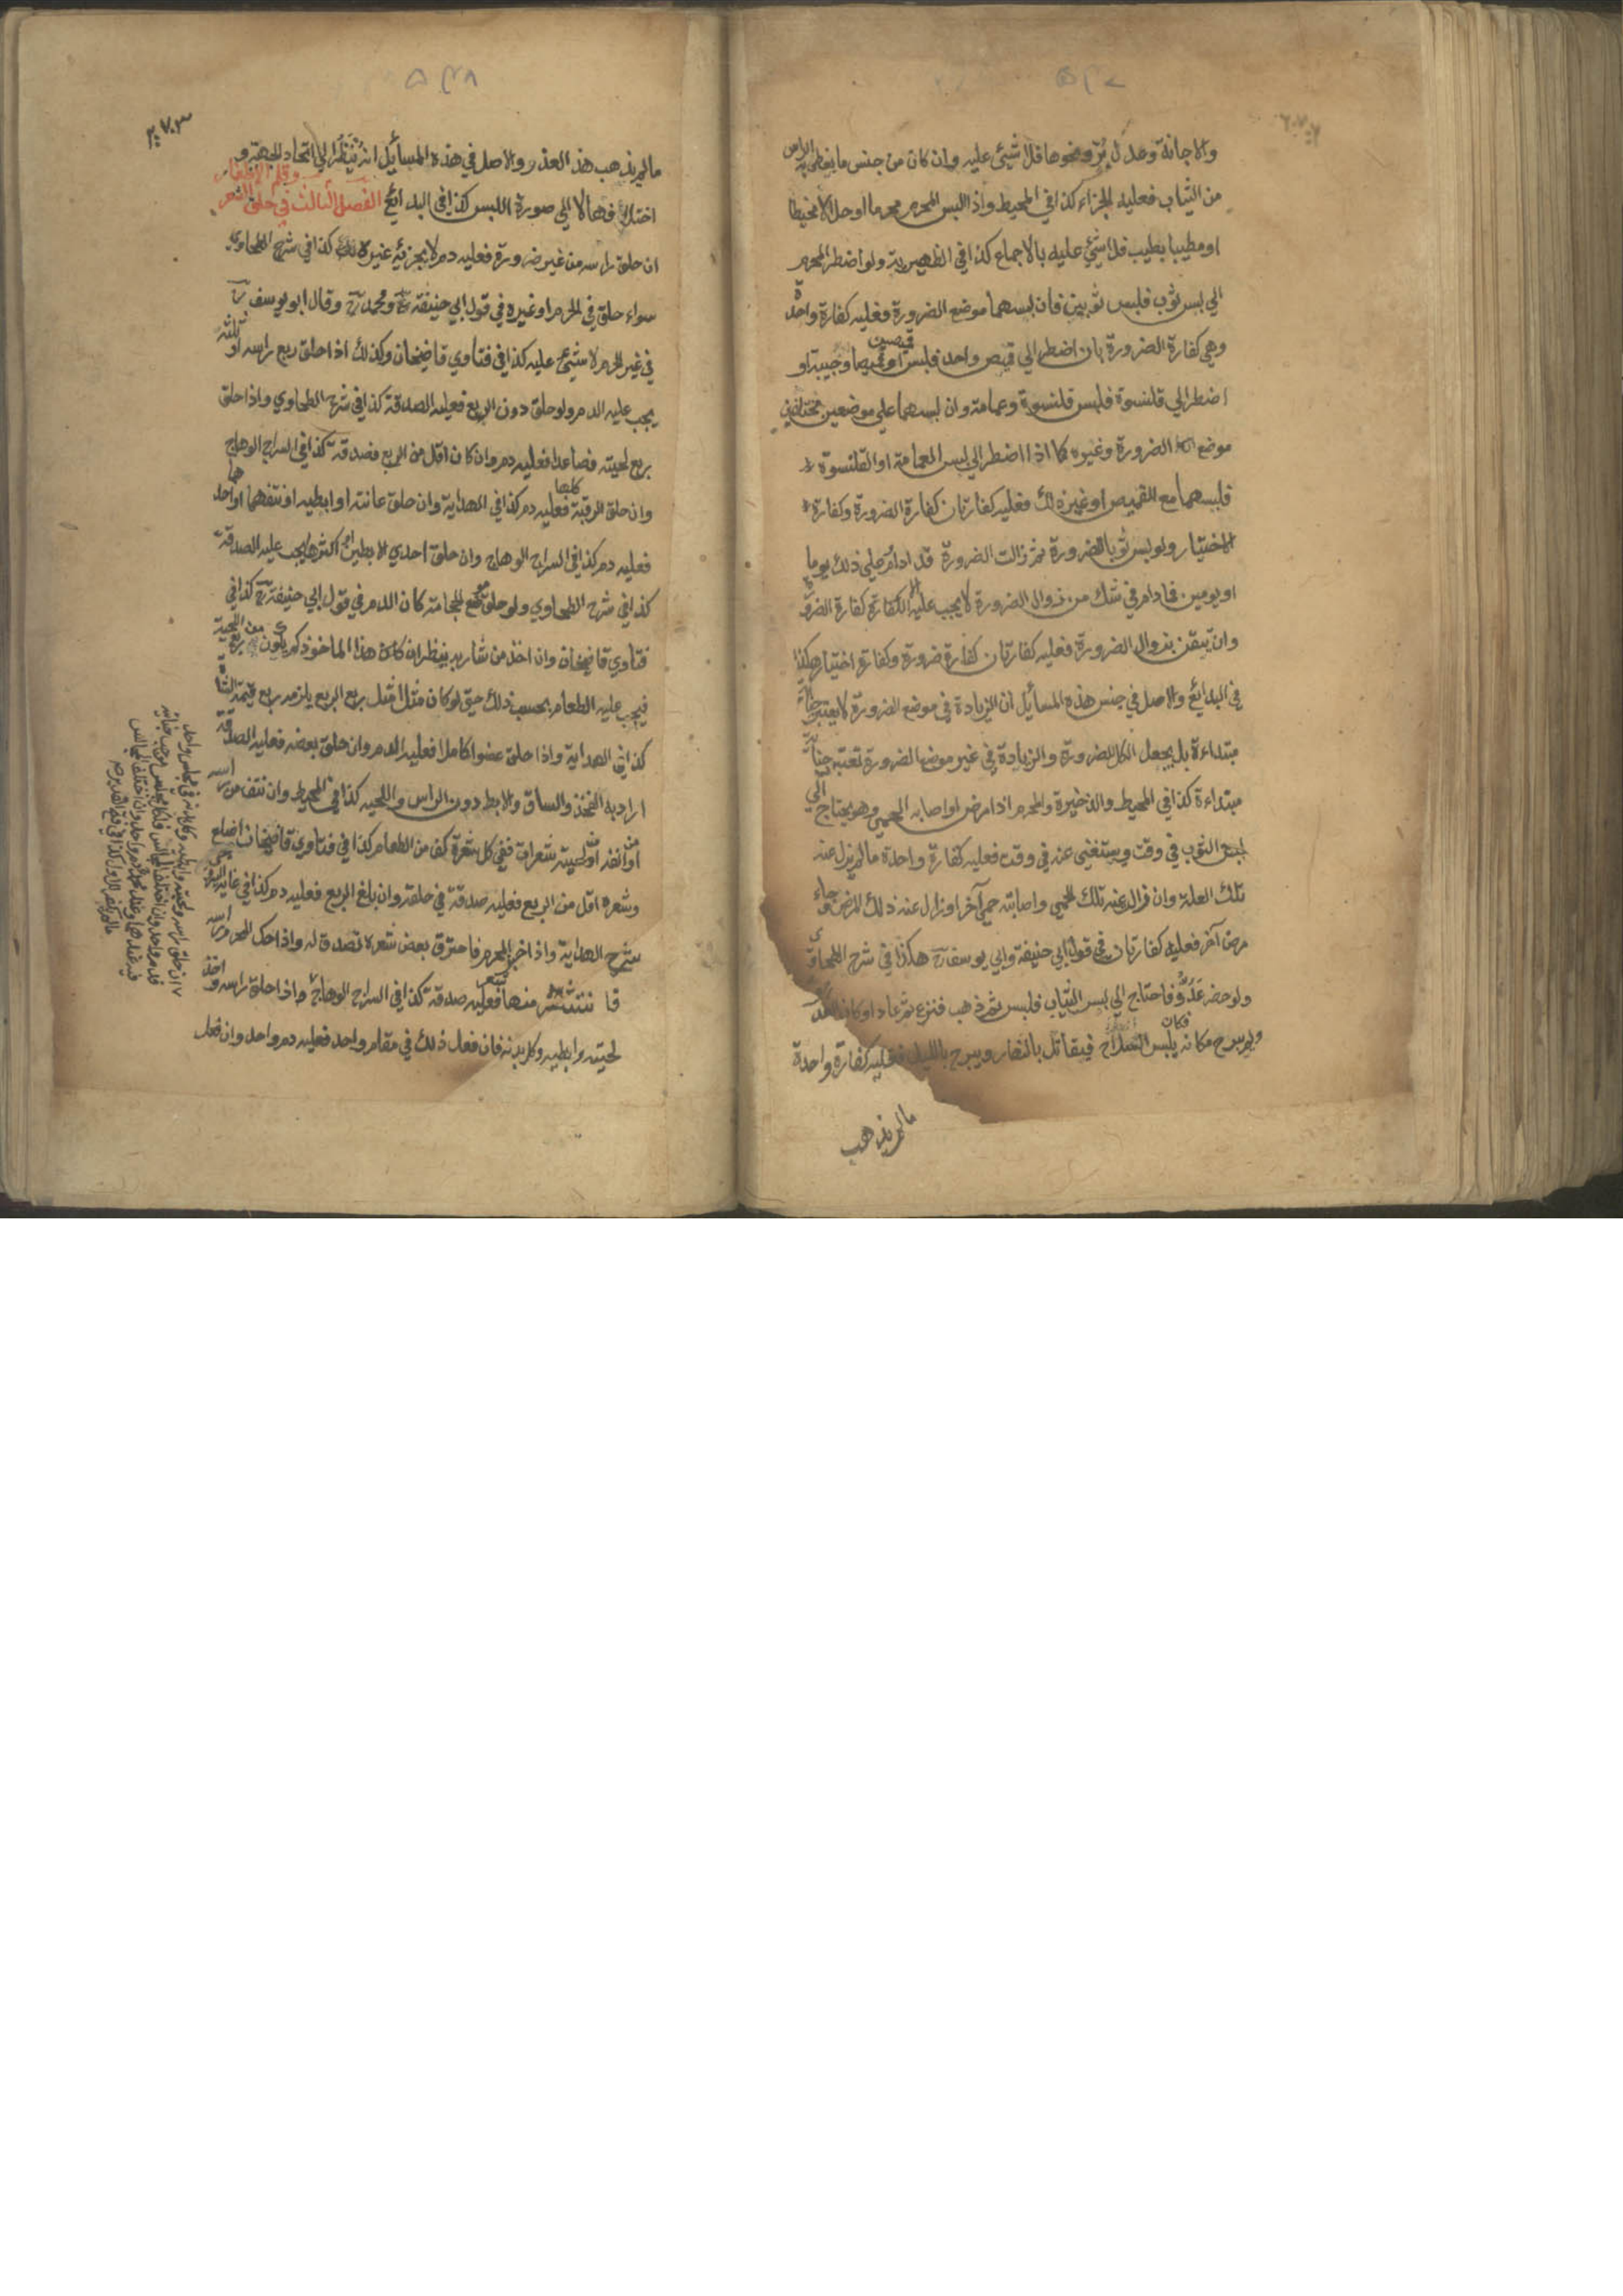 والاجانة وعدل بُرّ ونحوها فلا شيئ عليه وان كان من جنس ما يغطى به الراس
من الثياب فعليه الجزاء كذا في المحيط واذا البس المحرم محرما او حلالا مخيطا
او مطيبا بطيب فلا شيئ عليه بالاجماع كذا في الظهيرية ولو اضطر المحرم
الي لبس ثوب فلبس ثوبين فان لبسهما موضع الضرورة فعليه كفارة واحدة
وهي كفارة الضرورة بان اضطر الي قميص واحد فلبس قميصين او قميصا وجبة او
اضطر الي قلنسوة فلبس قلنسوة وعمامة وان لبسهما علي موضعين مختلفين
موضع الضرورة وغيره كما اذا اضطر الي لبس العمامة او القلنسوة
فلبسهما مع القميص او غير ذلك فعليه كفارتان كفارة الضرورة وكفارة
الاختيار ولو لبس ثوبا للضرورة ثم زالت الضرورة فداد ام علي ذلك يوما
او يومين فما دام في شك من زوال الضرورة لا يجب عليه الا كفارة كفارة الضرورة
وان تيقن بزوال الضرورة فعليه كفارتان كفارة ضرورة وكفارة اختيار هكذا
في البدائع والاصل في جنس هذه المسائل ان الزيادة في موضع الضرورة لا يعتبر جناية
مبتداءة بل يجعل الكل للضرورة والزيادة في غير موضع الضرورة تعتبر جناية
مبتداءة كذا في المحيط والذخيرة والمحرم اذا مرض او اصابه الحمي وهو يحتاج الي
لبس الثوب في وقت ويستغني عنه في وقت فعليه كفارة واحدة ما لم يزل عنه
تلك العلة وان زال عنه تلك الحمي واصابته حمي آخر او زال عنه ذلك المرض وجاء
مرض آخر فعليه كفارتان في قول ابي حنيفة وابي يوسف هكذا في شرح الطحاوي
ولو حضر عَدُوٌّ فاحتاج الي لبس الثياب فلبس ثم ذهب فنزع ثم عاد او كان العدو
ولم يبرح مكانه فكان يلبس السلاح فيقاتل بالنهار ويبرح بالليل فعليه كفارة واحدة
ما لم يذهب
ما لم يذهب هذا العذر والاصل في هذه المسائل انه يُنظر الي اتحاد الجهة و
اختلافها لا الي صورة اللبس كذا في البدائع الفصل الثالث في حلق الشعر وقلم الاظفار
ان حلق راسه من غير ضرورة فعليه دم لا يجزئه غيره كذا في شرح الطحاوي
سواء حلق في الحرم او غيره في قول ابي حنيفة ومحمد وقال ابو يوسف
في غير الحرم لا شيئ عليه كذا في فتاوي قاضيخان وكذلك اذا حلق ربع راسه او ثلثه
يجب عليه الدم ولو حلق دون الربع فعليه الصدقة كذا في شرح الطحاوي واذا حلق
ربع لحيته فصاعدا فعليه دم وان كان اقل من الربع فصدقة كذا في السراج الوهاج
وان حلق الرقبة كلها فعليه دم كذا في الهداية وان حلق عانته او ابطيه او نتفهما او احدهما
فعليه دم كذا في السراج الوهاج وان حلق احدي الابطين او اكثرها يجب عليه الصدقة
كذا في شرح الطحاوي ولو حلق موضع الحجامة كان الدم في قول ابي حنيفة كذا في
فتاوي قاضيخان وان اخذ من شاربه ينظر ان هذا الماخوذ كم يكون من ربع اللحية
فيجب عليه الطعام بحسب ذلك حتي لو كان مثلا مثل ربع الربع يلزمه ربع قيمة الشاة
كذا في الهداية واذا حلق عضوا كاملا فعليه الدم وان حلق بعضه فعليه الصدقة
اراد به الفخذ والساق والابط دون الراس واللحيه كذا في المحيط وان نتف من راسه
او انفه او لحيته شعرات ففي كل شعرة كف من الطعام كذا في فتاوي قاضيخان اصلع
وشعره اقل من الربع فعليه صدقة في حلقه وان بلغ الربع فعليه دم كذا في غاية السروجي
شرح الهداية واذا خبز المحرم فاحترق بعض شعره تصدق له واذا حك المحرم راسه
فانتثر منها شعر فعليه صدقة كذا في السراج الوهاج واذا حلق راسه واخذ
لحيته وابطيه وكل بدنه فان فعل ذلك في مقام واحد فعليه دم واحد وان فعل
ان حلق راسه ولحيته وابطيه وكل بدنه في مجلس واحد
فدم واحد وان اختلف المجالس فلكل مجلس موجب جنايته